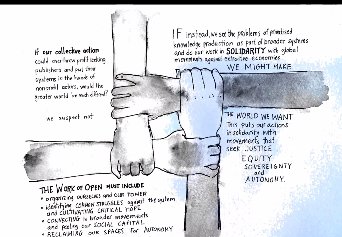 IF our collective action
could overthrow profit-seeking
publishers and put their
systems in the hands of
nonprofit actors, would the
greater world be much affected?
we suspect not
IF instead, we see the problems of privatised
knowledge production as part of broader systems
and do our work in SOLIDARITY with global
movements against extractive economies
WE MIGHT MAKE
THE WORLD WE WANT
This puts our actions
in solidarity with
movements that
seek JUSTICE
EQUITY
SOVEREIGNTY
and
AUTONOMY.
THE WORK OF OPEN MUST INCLUDE
• organizing ourselves and our POWER
• identifying COMMON STRUGGLES against the system
and CULTIVATING CRITICAL HOPE
• CONNECTING to broader movements
and pooling our SOCIAL CAPITAL
• RECLAIMING OUR SPACES FOR AUTONOMY